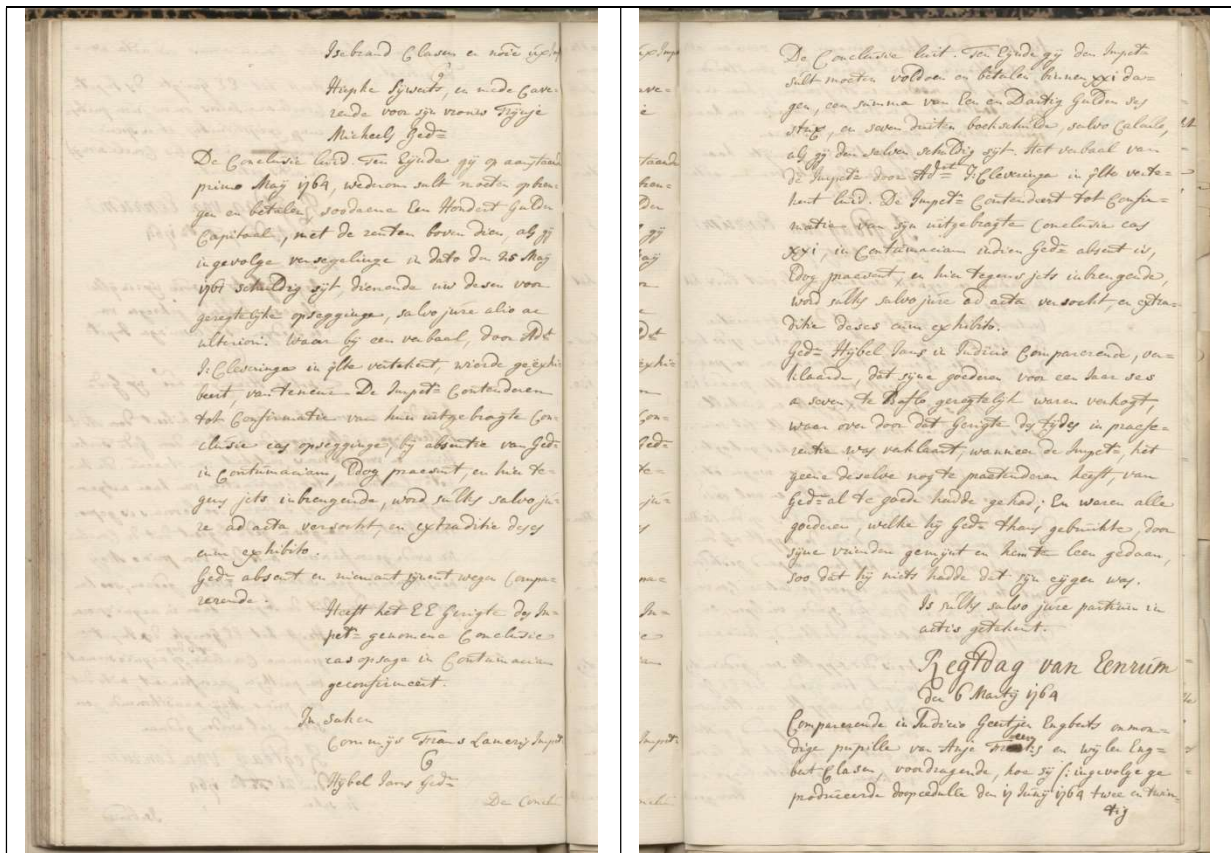 Isebrand Clasen e noie ux: imp
C
Hiepke Sywerts, en mede Cave-
rende voor sijn vrouw Trijnje
Micheels Ged=
De Conclusie luid Ten Eijnde gij op aanstaande
primo Maij 1764, wederom sult moeten opbren-
gen en betalen, soodaene Een Hondert Gulden
Capitaal, met de renten boven dien, als gij
ingevolge versegelinge in dato den 25 Maij
schuldig sijt, dienende uw desen voor
geregtelijke opsegginge, salvo jure alio ac
ulteriori. Waar bij een verbaal, door Adt
J: Cleveringa in q̃lte vertekent, wierde geexhi-
beert, van teneur De Impet= Contenderen
tot Confirmatie van hier uitgebragte Con-
clusie cas opsegginge, bij absentie van Ged=
in Contumaciam, Edog praesent, en hier te-
gens jets inbrengende, word sulks salvo ju-
re ad acta versocht, en extraditie deses
cum exhibito.
Ged= absent en niemant sijnent wegen Compa-
rerende.
Heeft het EE Gerigte des Im-
pet= genomene Conclusie
cas opsage in Contumaciam
geconfirmeert.
In saken
Commijs Frans Lamerijs Impet
C
Hijbel Jans Ged=
De Conclu
De Conclusie luit. Ten Eijnde gij den Impet=
sult moeten voldoen en betalen binnen xxi da=
gen, een summa van Een en Dartig Gulden ses
stuiv, en seven duiten boekschulde, salvo Calculo,
als gij den selven schuldig sijt. Het verbaal van
de Impete door Adt= J: Cleveringa in q̃lte verte-
kent luid. De Impet= Contendeert tot Confir-
matie van sijn uitgebragte Conclusie cas
xxi, in Contumaciam indien Ged= absent is,
Edog praesent en hier tegens jets inbrengende,
word sulks salvo jure ad acta versocht, en extra-
ditie deses cum exhibito.
Ged= Hijbel Jans in Judicio Comparerende, ver-
klaarde, dat sijne goederen voor een Jaar ses
a seven te Baflo geregtelijk waren verkogt,
waar over door dat Gerigte des tijdes in praefe-
rentie was verklaart, wanneer de Impete, het
geene deselve nog te praetenderen heeft, van
Ged= al te goede hadde gehad; En waren alle
goederen, welke hij Ged= thans gebruikte, door
sijne vrienden gemijnt en hem te leen gedaan,
soo dat hij niets hadde dat sijn eijgen was.
Is sulks salvo jure partium in
actis getekent.
Regtdag van Eenrum
den 6 Martij 1764
Comparerende in Judicio Geertjen Engberts onmon-
dige pupille van Anje en wijlen Eng=
bert Clasen, voordragende, hoe sij /: ingevolge ge
produceerde doopcedulle den 17 Junij 1764 twee en twin-
tig